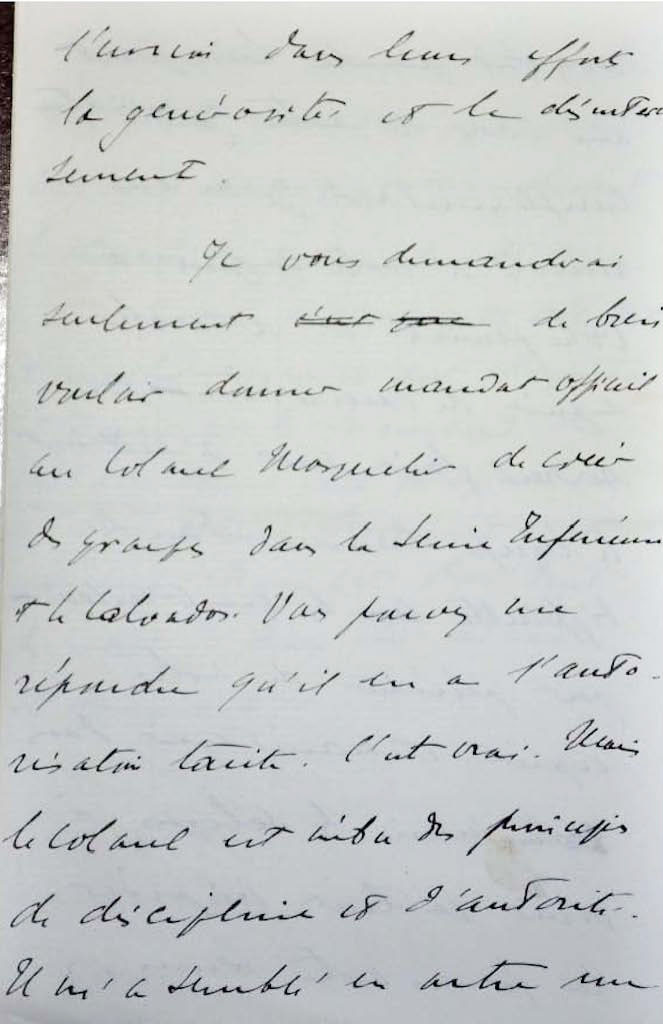 dans leurs efforts
la générosité et le désintéres
sement.
Je vous demanderai
seulement c'est que de bien
vouloir donner mandat officiel
au Colonel de créer
des groupes dans la Seine Inférieure
et le Calvados. Vous pouvez me
répondre qu'il en a l'auto-
risation tacite. C'est vrai. Mais
le Colonel est imbu des principes
de discipline et d'autorité.
Il m'a semblé en outre une